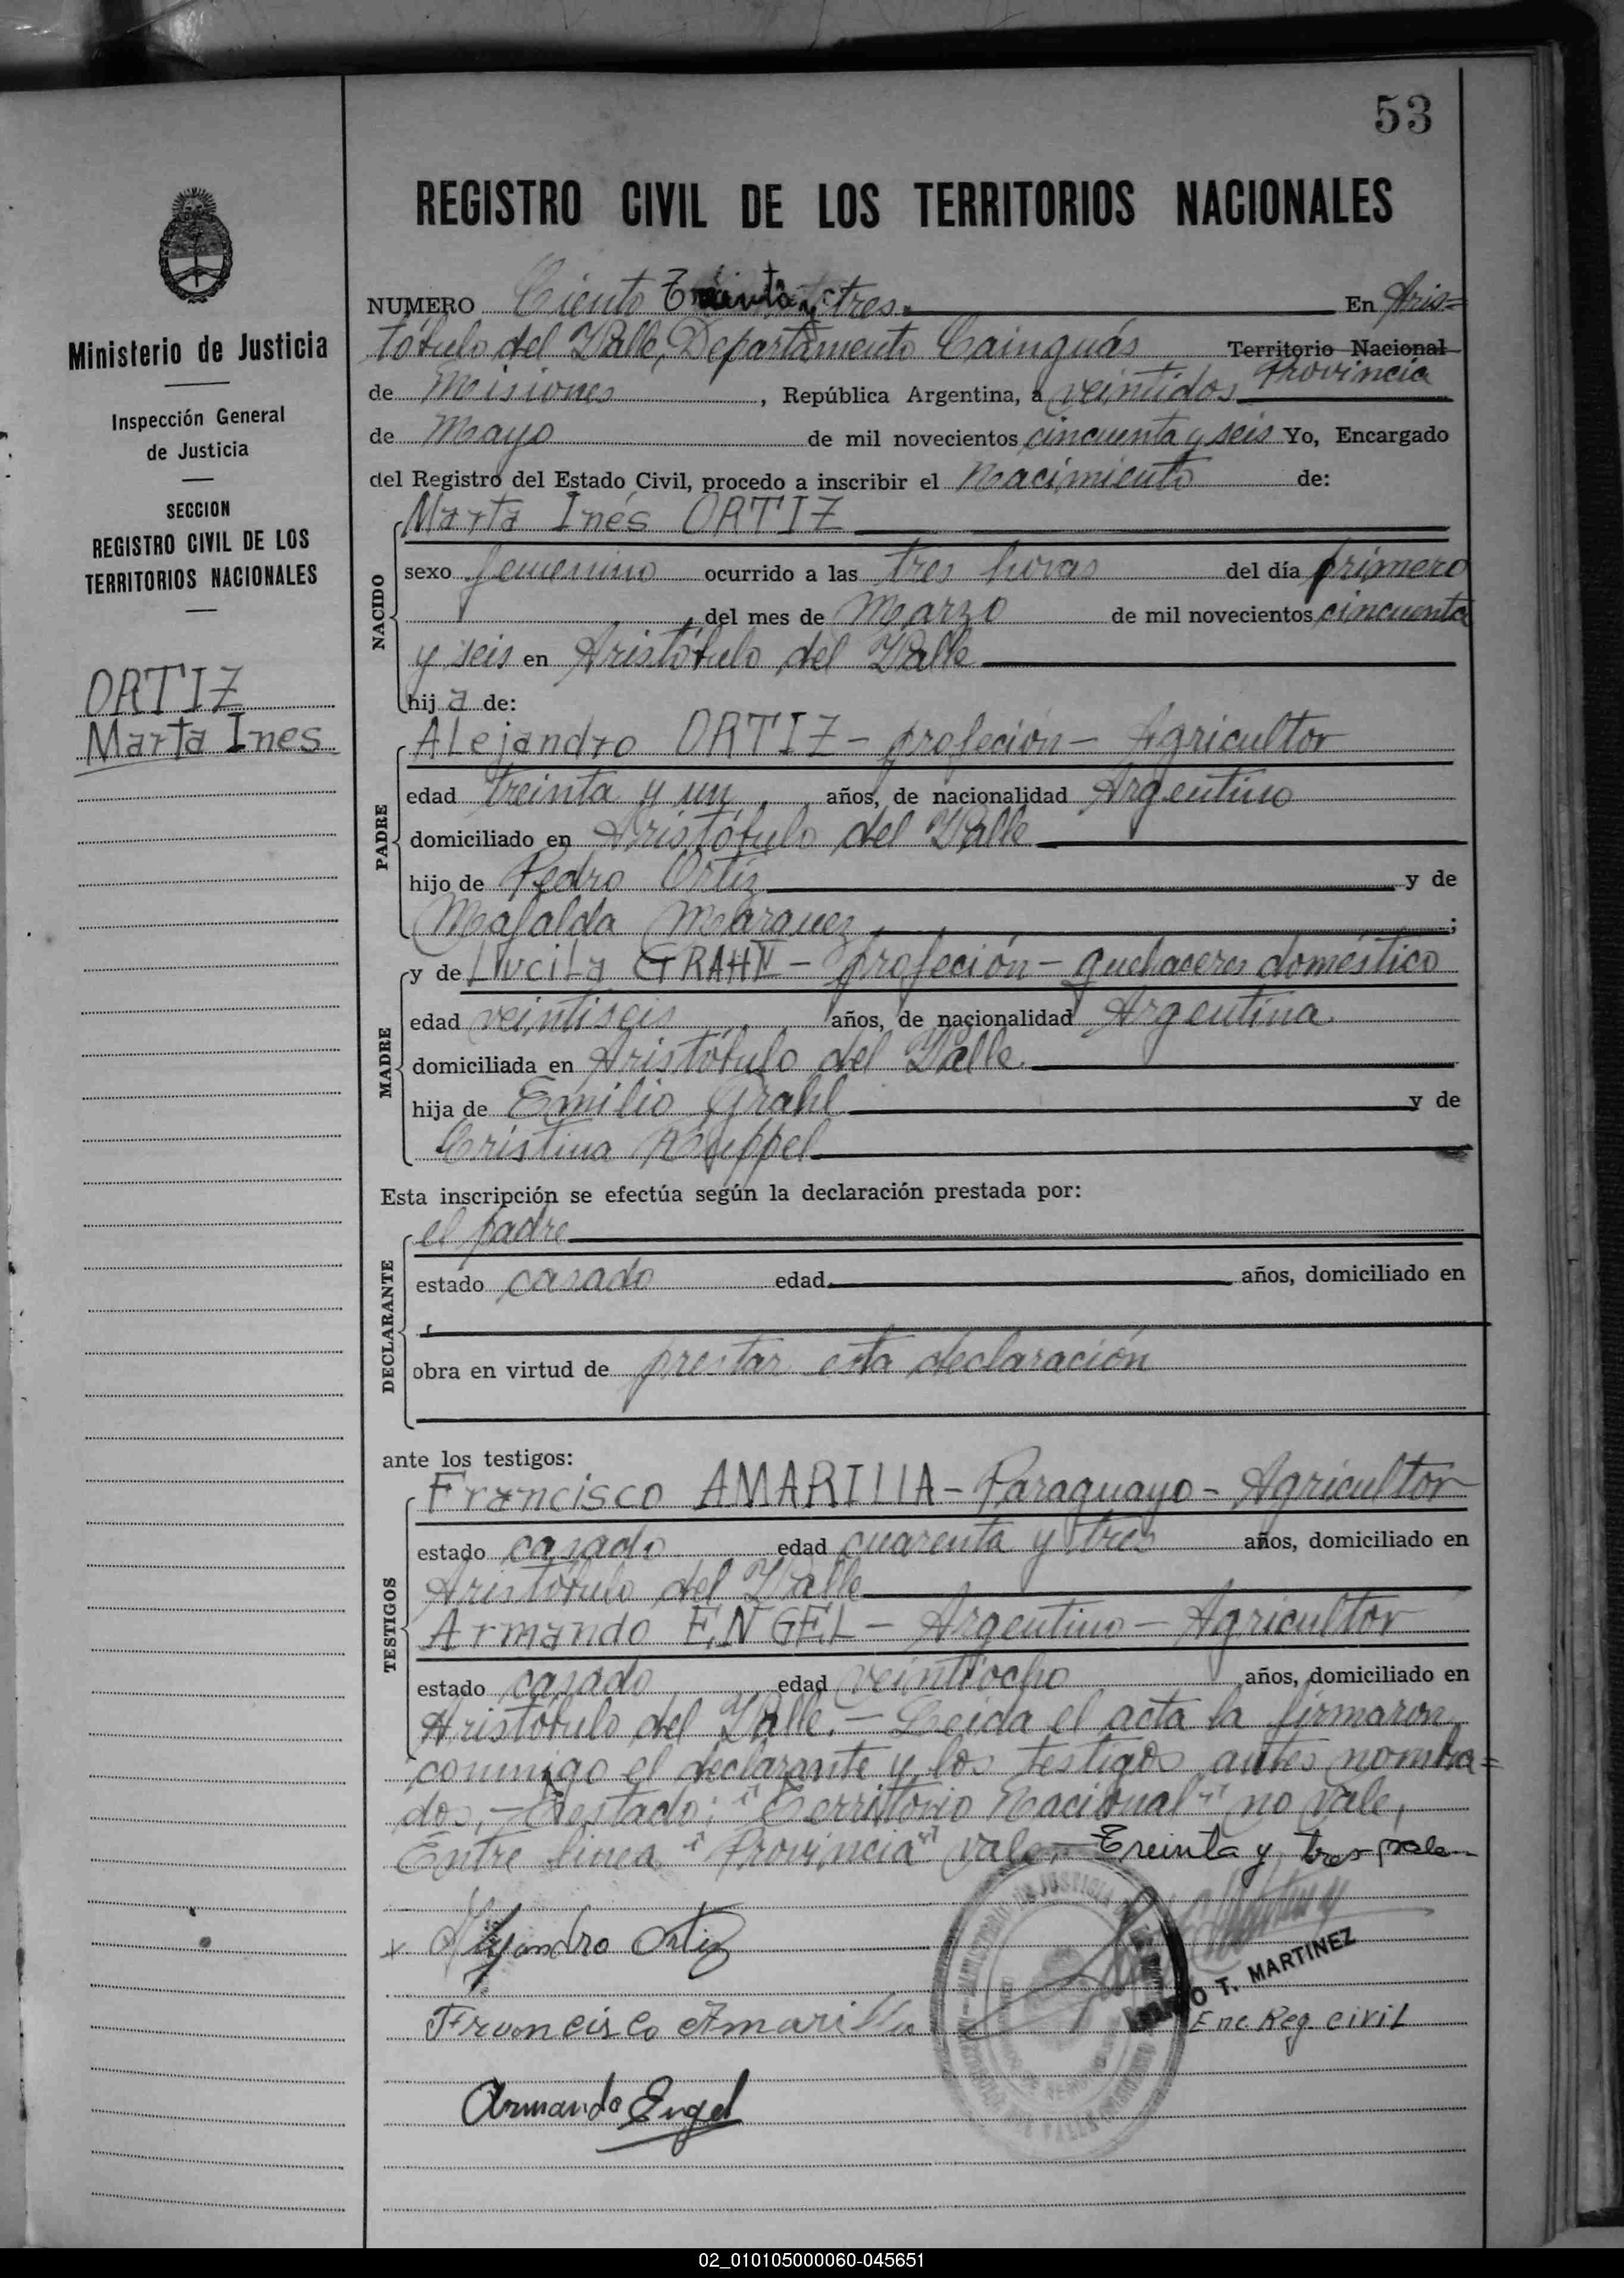 53
REGISTRO CIVIL DE LOS TERRITORIOS NACIONALES
Ministerio de Justicia
Inspección General
de Justicia
SECCION
REGISTRO CIVIL DE LOS
TERRITORIOS NACIONALES
ORTIZ
Marta Ines
NUMERO Ciento Treinta y tres. En Aris=
tóbulo del Valle, Departamento Cainguás Territorio Nacional
Provincia
de Misiones, República Argentina, a veintidos
de Mayo de mil novecientos cincuenta y seis Yo, Encargado
del Registro del Estado Civil, procedo a inscribir el Nacimiento de:
NACIDO
Marta Inés ORTIZ
sexo femenino ocurrido a las tres horas del día primero
, del mes de Marzo de mil novecientos cincuenta
y seis en Aristóbulo del Valle
hij a de:
PADRE
Alejandro ORTIZ - profeción - Agricultor
edad treinta y un años, de nacionalidad Argentino
domiciliado en Aristóbulo del Valle
hijo de Pedro Ortiz y de
Mafalda Marquez ;
MADRE
y de Lucila GRAHL - profeción - quehaceres doméstico
edad veintiseis años, de nacionalidad Argentina
domiciliada en Aristóbulo del Valle.
hija de Emilio Grahl y de
Cristina
Esta inscripción se efectúa según la declaración prestada por:
DECLARANTE
el padre
estado casado edad años, domiciliado en
obra en virtud de prestar esta declaración
ante los testigos:
TESTIGOS
Francisco AMARILLA - Paraguayo - Agricultor
estado casado edad cuarenta y tres años, domiciliado en
Aristóbulo del Valle
Armando ENGEL - Argentino - Agricultor
estado casado edad veintiocho años, domiciliado en
Aristóbulo del Valle. - Leida el acta la firmaron
conmigo el declarante y los testigos antes nombra=
dos, - Testado: "Territorio Nacional" no vale,
Entre linea "Provincia" vale, - Treinta y tres vale
Alejandro Ortiz
Francisco Amarilla
Armando Engel
T. MARTINEZ
Enc Reg. civil
02_010105000060-045651